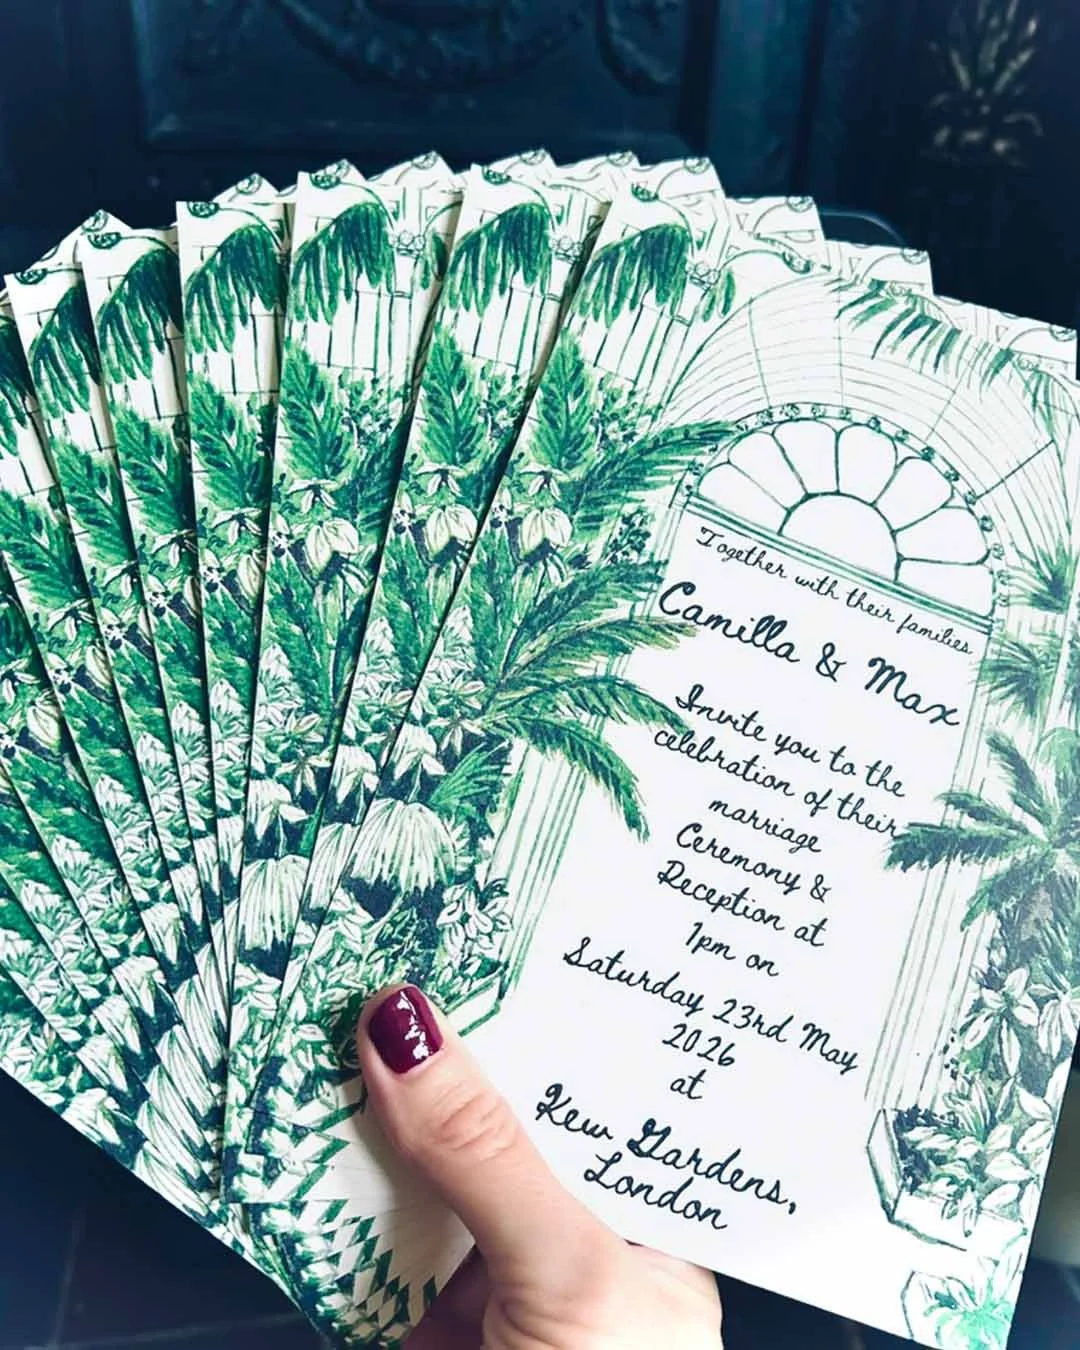 Together with their families
Camilla & Max
Invite you to the
celebration of their
marriage
Ceremony &
Reception at
1pm on
Saturday 23rd May
2026
at
Kew Gardens,
London